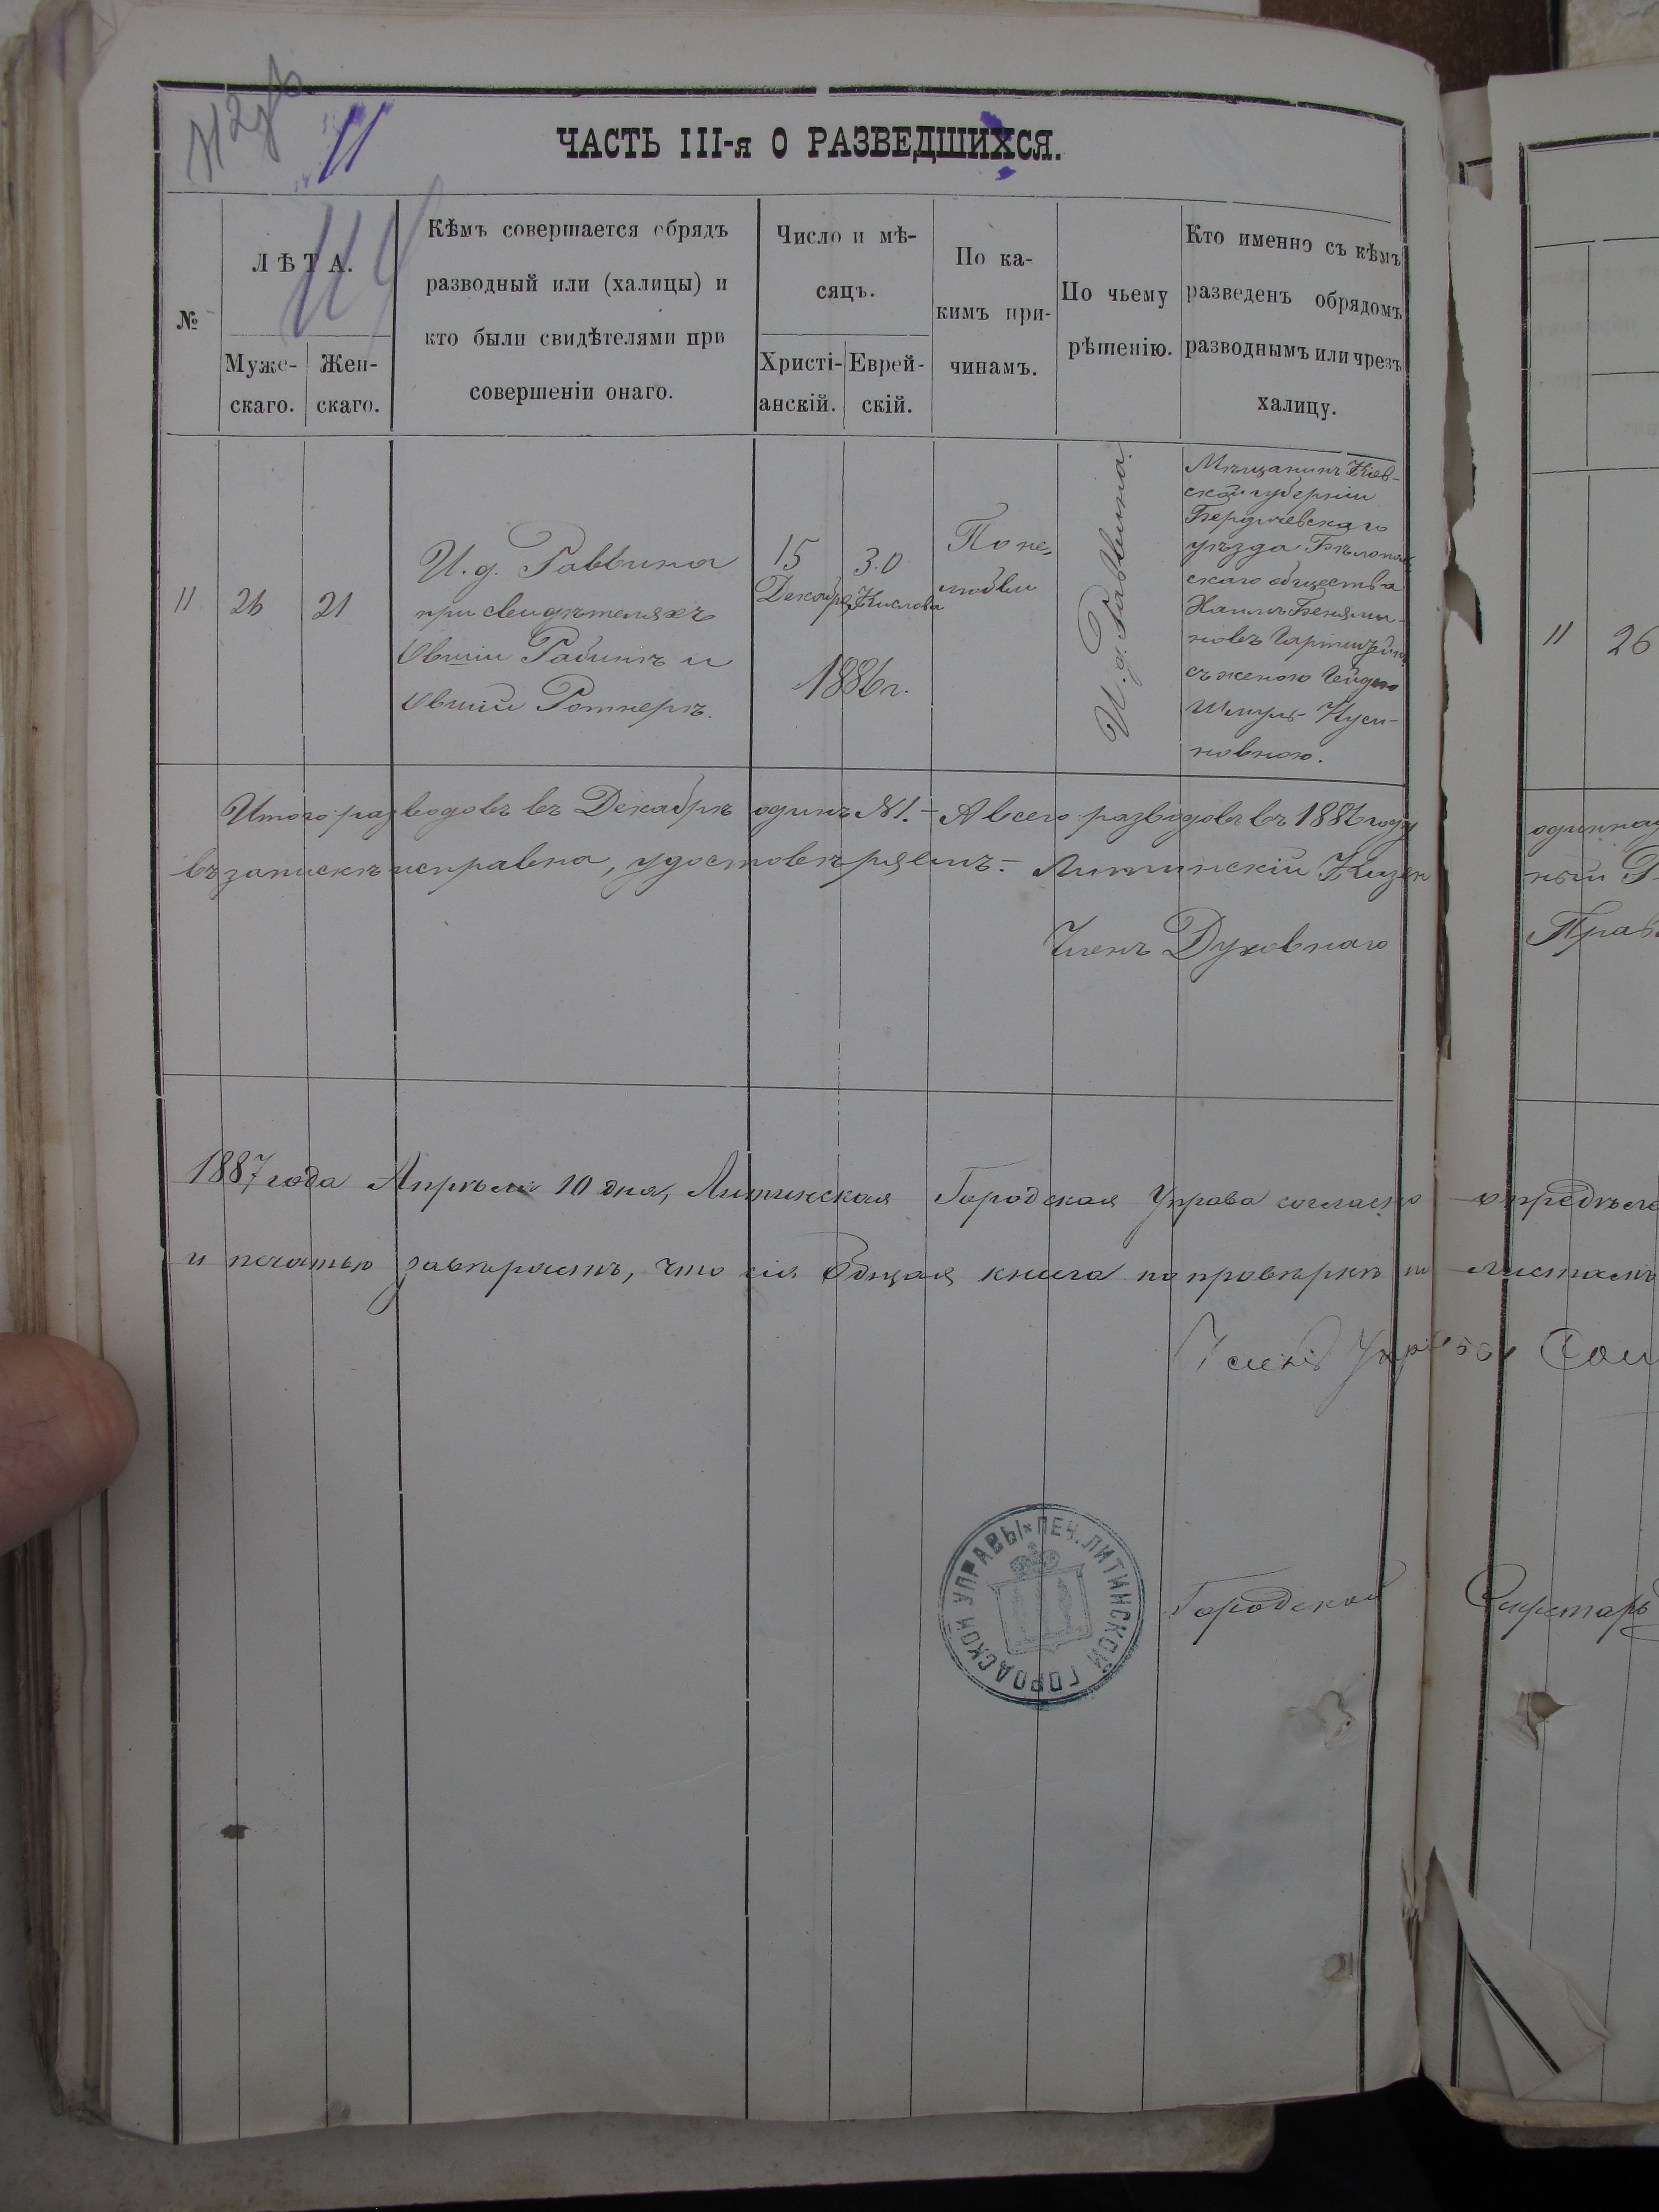 11
114
ЧАСТЬ III-я О РАЗВЕДШИХСЯ.
№
ЛѢТА.
Муже-
скаго.
Жен-
скаго.
Кѣмъ совершается обрядъ
разводный или (халицы) и
кто были свидѣтелями при
совершеніи онаго.
Число и мѣ-
сяцъ.
Христі-
анскій.
Еврей-
скій.
По ка-
кимъ при-
чинамъ.
По чьему
рѣшенію.
Кто именно съ кѣмъ
разведенъ обрядомъ
разводнымъ или чрезъ
халицу.
11
26
21
И. д. Раввина
при свидѣтеляхъ
Овшіи Рабинъ и
Овшіи Ротнеръ.
15
Декабря
30
Кислова
1886 г.
По не-
любви
И. д. Раввина.
Мѣщанинъ Кіев-
ской губерніи
Бердичевскаго
уѣзда
скаго общества
Хаимъ Беньями-
новъ
съ женою Гейдею
Шмуль-Нуси-
новною.
Итого разводовъ въ Декабрѣ одинъ №1. — А всего разводовъ въ 1886 году
въ запискѣ исправна, удостовѣряемъ. — Литинскій Казен
Членъ Духовнаго
1887 года Апрѣля 10 дня, Литинская Городская Управа согласно опредѣле
и печатью завѣряетъ, что сія Общая книга по провѣркѣ по листамъ
Членъ Управы
ПЕЧ. ЛИТИНСКОЙ ГОРОДСКОЙ УПРАВЫ
Городской Секретарь
11
26
одиннад
ный
Прав